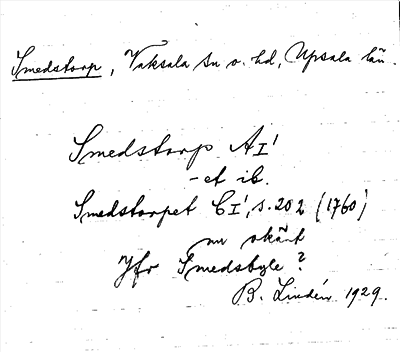 Smedstorp, Vaksala sn o. hd, Upsala län.
Smedstorp AI'
-et ib.
Smedstorpet CI', s. 202 (1760)
nu okänt
Jfr Smedsbyle?
B. Lindén 1929.